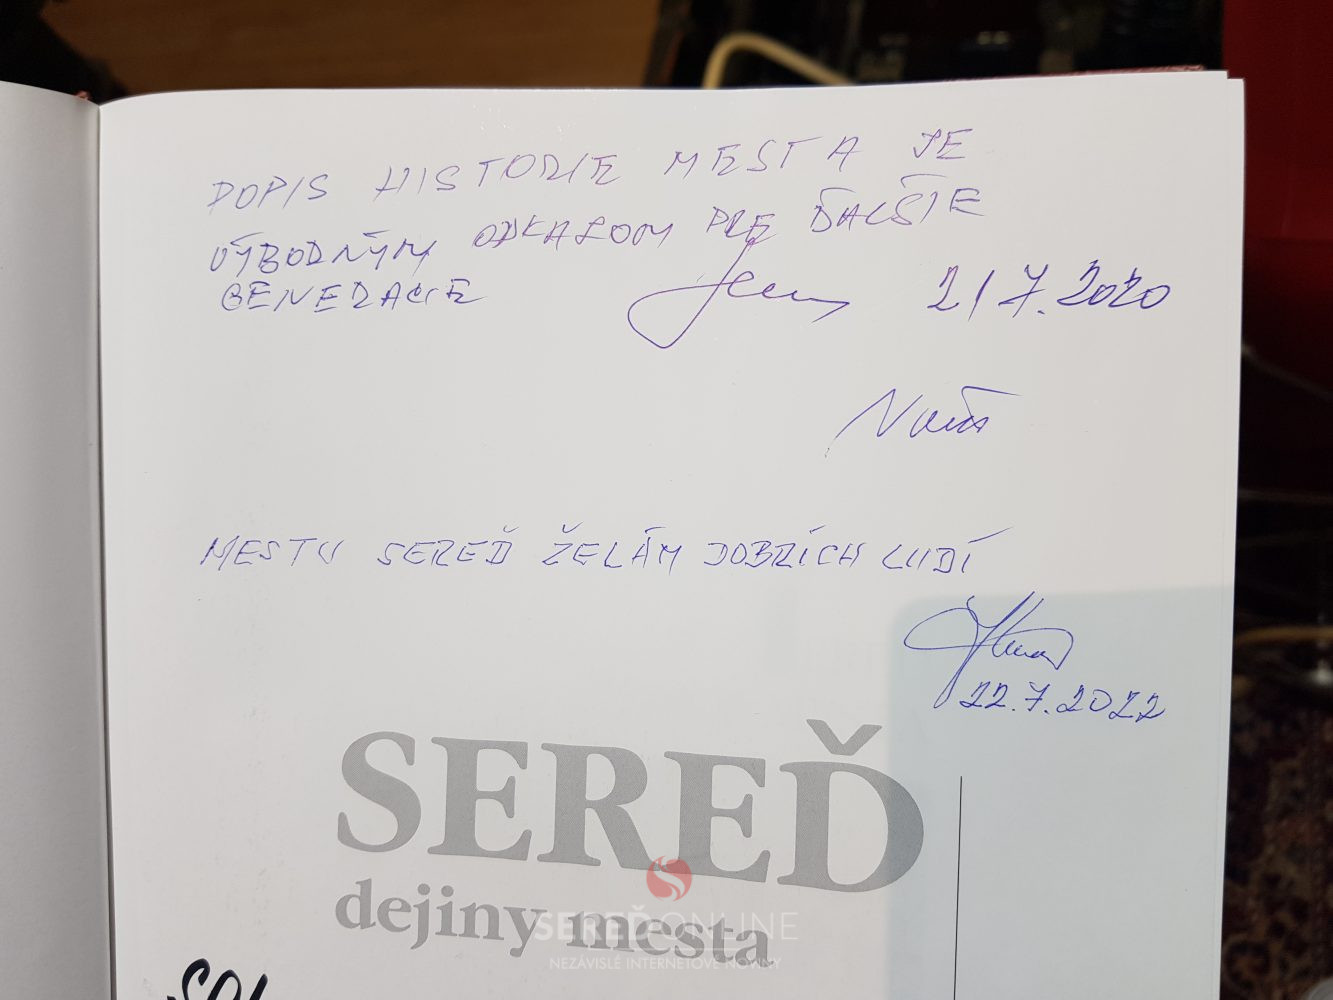 POPIS HISTORIE MESTA JE
VÝBODNÝM ODKAZOM PRE ĎALŠIE
GENERACIE
21.7.2020
MESTU SEREĎ ŽELÁM DOBRÍCH LUDÍ
22.7.2022
SEREĎ
dejiny mesta
SEREĎONLINE
NEZÁVISLÉ INTERNETOVÉ NOVINY